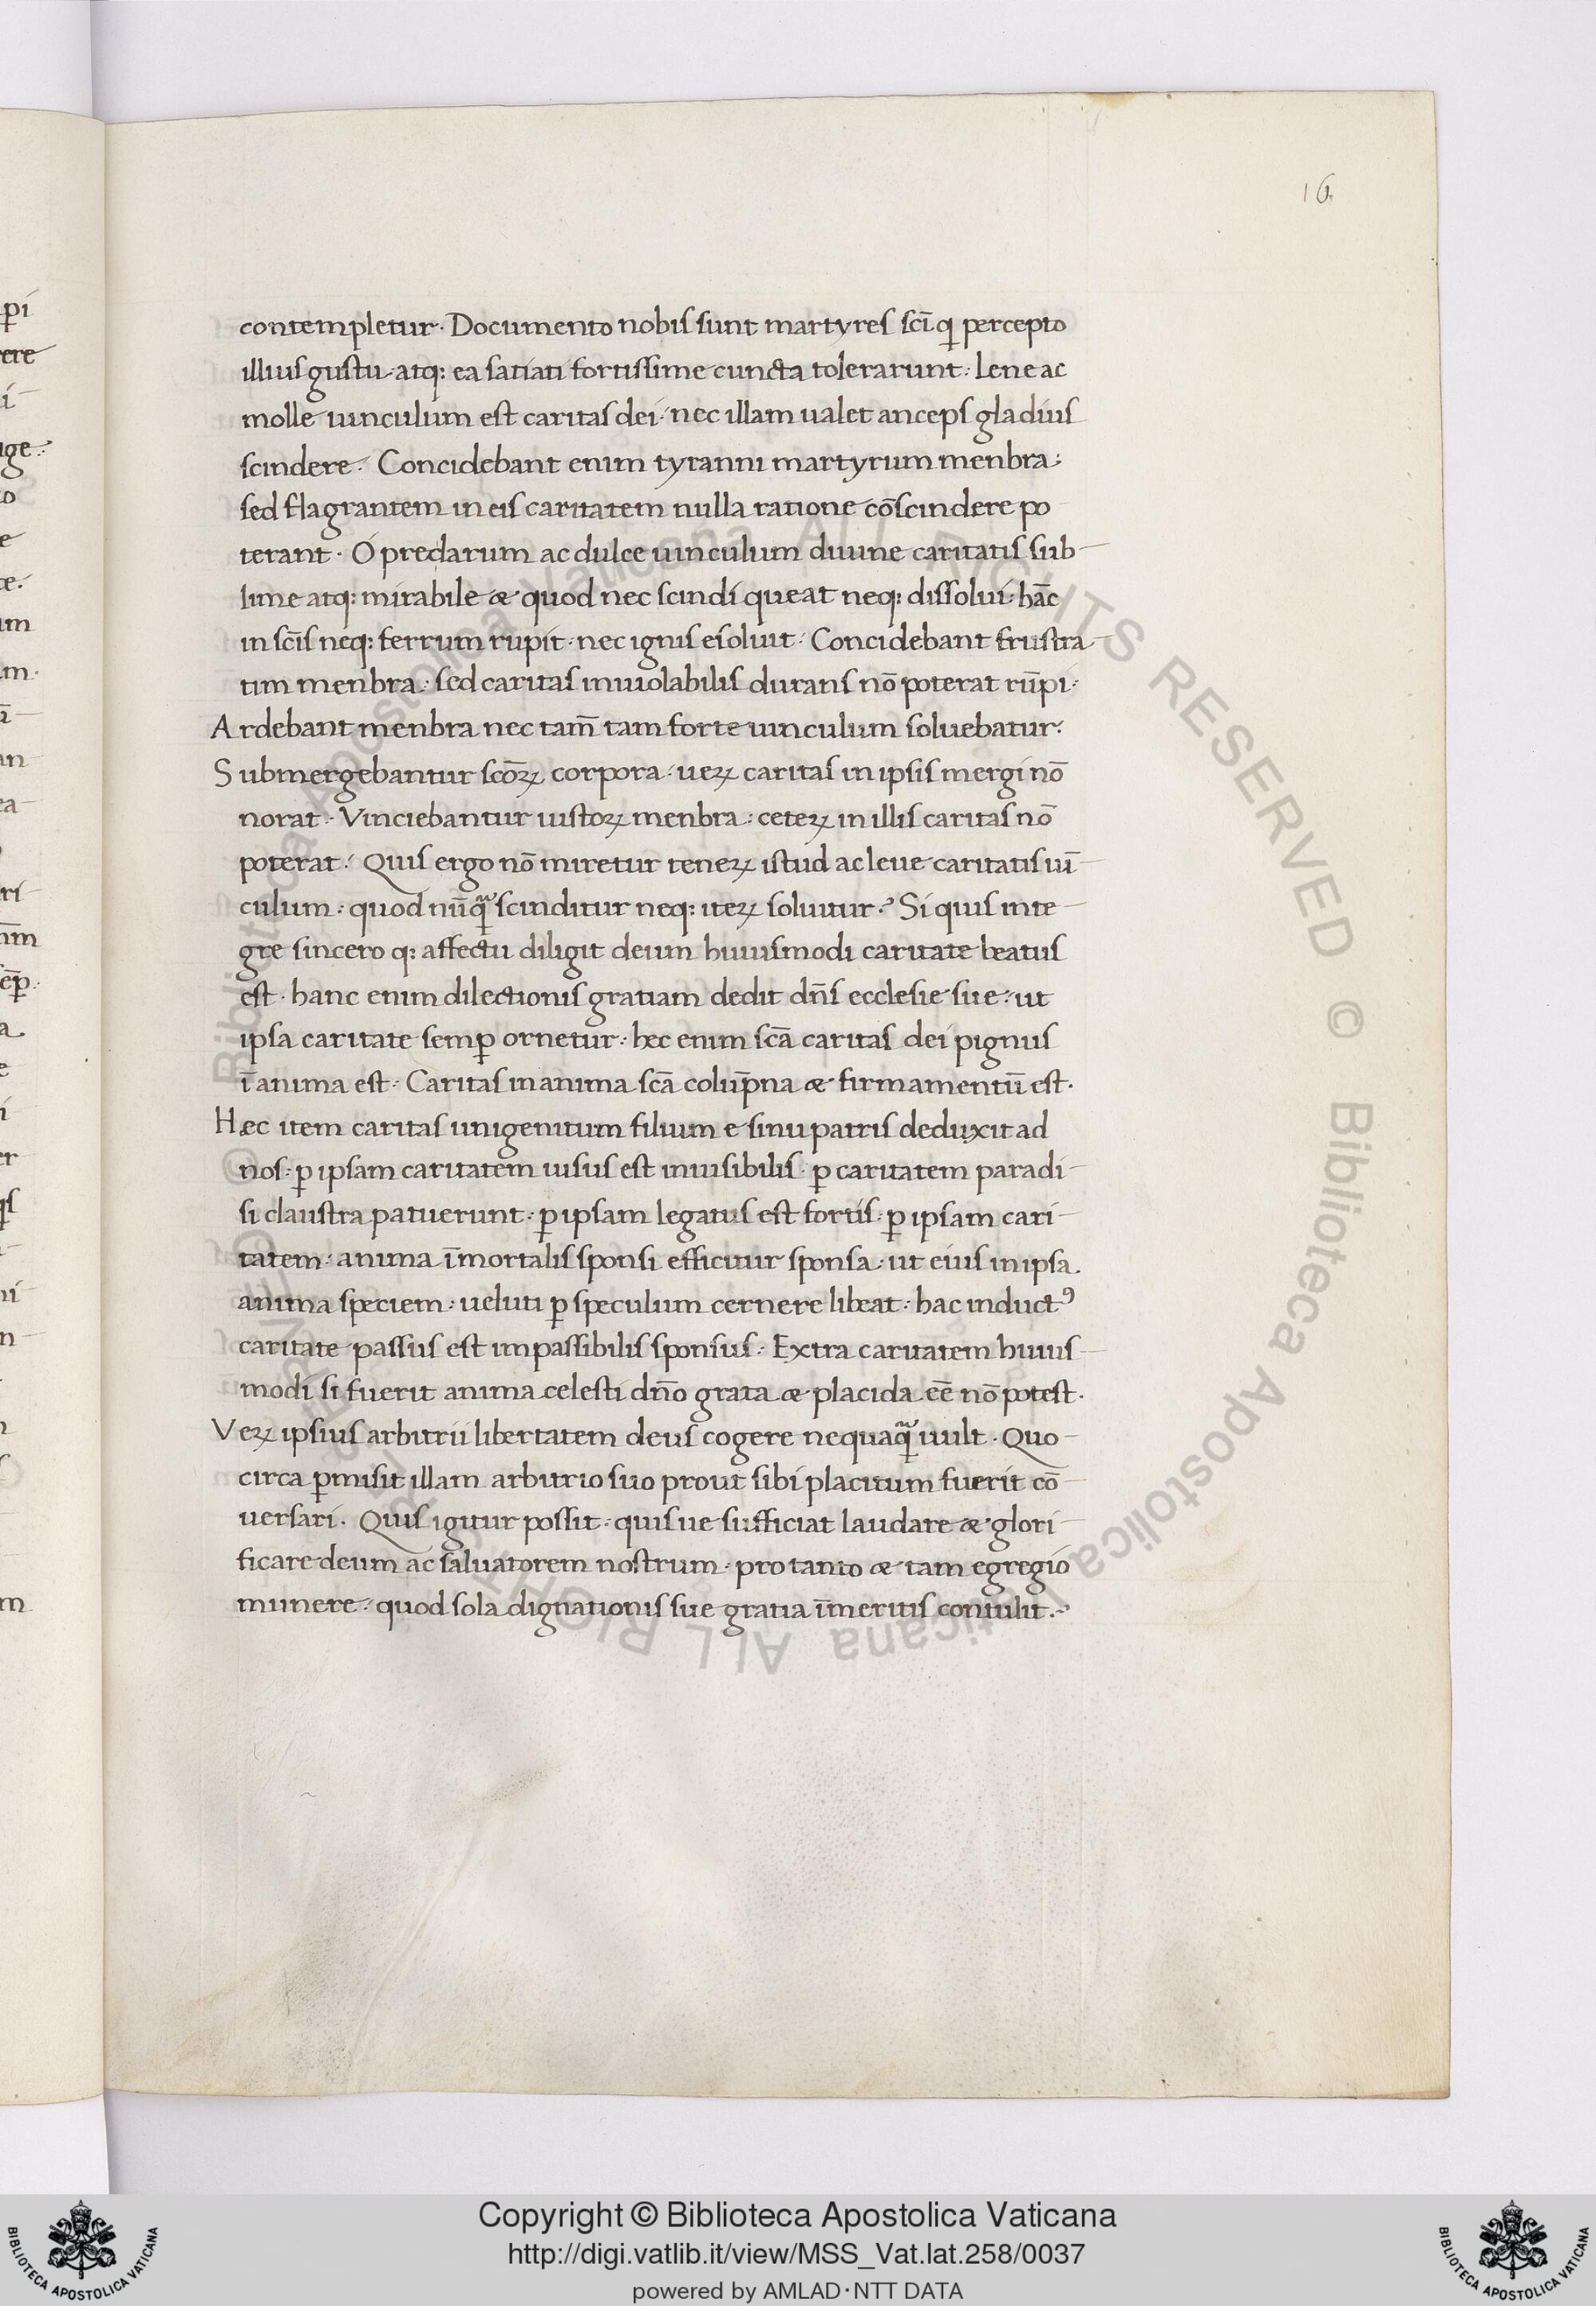 16
contempletur· Documento nobis sunt martyres scī qͥ percepto
illius gustu atq: ea satiati fortissime cuncta tolerarunt: lene ac
molle uinculum est caritas dei: nec illam ualet anceps gladius
scindere: Concidebant enim tyranni martyrum menbra:
sed flagrantem in eis caritatem nulla ratione cōscindere po
terant· O preclarum ac dulce uinculum diuine caritatis sub-
lime atq: mirabile æ quod nec scindi queat neq: dissolui: hāc
in scīs neq: ferrum rupit· nec ignis exsoluit· Concidebant frustra-
tim menbra: sed caritas inuiolabilis durans nō poterat rūpi·
Ardebant menbra nec tam̄ tam forte uinculum soluebatur:
Submergebantur scōꝝ corpora: ueꝝ caritas in ipsis mergi nō
norat· Vinciebantur iustoꝝ menbra: ceteꝝ in illis caritas nō
poterat: Quis ergo nō miretur teneꝝ istud ac leue caritatis uī-
culum: quod nūqᷓ scinditur neq: iteꝝ soluitur? Si quis inte-
gre sincero q: affectu diligit deum huiusmodi caritate beatus
est· hanc enim dilectionis gratiam dedit dn̄s ecclesie sue: ut
ipsa caritate semꝑ ornetur: hec enim scā caritas dei pignus
ī anima est· Caritas in anima scā colūpna æ firmamentū est·
Hæc item caritas unigenitum filium e sinu patris deduxit ad
nos: ꝑ ipsam caritatem uisus est inuisibilis· ꝑ caritatem paradi-
si claustra patuerunt: ꝑ ipsam legatus est fortis: ꝑ ipsam cari-
tatem· anima īmortalis sponsi efficitur sponsa: ut eius in ipsa
anima speciem: ueluti ꝑ speculum cernere libeat: hac inductꝰ
caritate passus est impassibilis sponsus: Extra caritatem huius-
modi si fuerit anima celesti dn̄o grata æ placida ēē nō potest·
Veꝝ ipsius arbitrii libertatem deus cogere nequaqᷓ uult· Quo-
circa ꝑmisit illam arbitrio suo prout sibi placitum fuerit cō-
uersari· Quis igitur possit: quis ue sufficiat laudare æ glori-
ficare deum ac saluatorem nostrum· pro tanto æ tam egregio
munere: quod sola dignationis sue gratia īmeritis contulit·
© Biblioteca Apostolica Vaticana ALL RIGHTS RESERVED
© Biblioteca Apostolica Vaticana ALL RIGHTS RESERVED
Copyright © Biblioteca Apostolica Vaticana
http://digi.vatlib.it/view/MSS_Vat.lat.258/0037
powered by AMLAD·NTT DATA
BIBLIOTECA APOSTOLICA VATICANA
BIBLIOTECA APOSTOLICA VATICANA